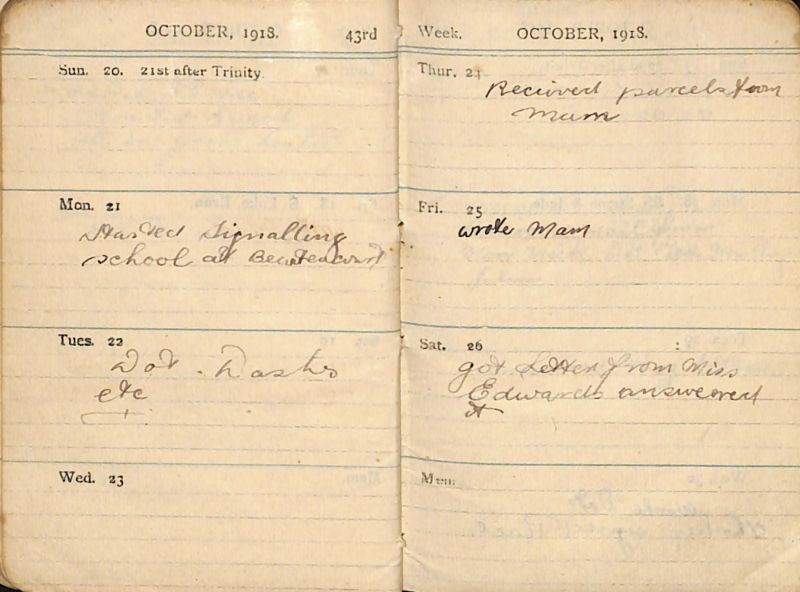 OCTOBER, 1918. 43rd
Sun. 20. 21st after Trinity.
Mon. 21
Started Signalling
school at
Tues. 22
Dot. Dashs
etc
Wed. 23
Week. OCTOBER, 1918.
Thur. 24
Recieved parcels from
Mum
Fri. 25
wrote Mam
Sat. 26
got Letter from Miss
Edwards answered
it
Mem